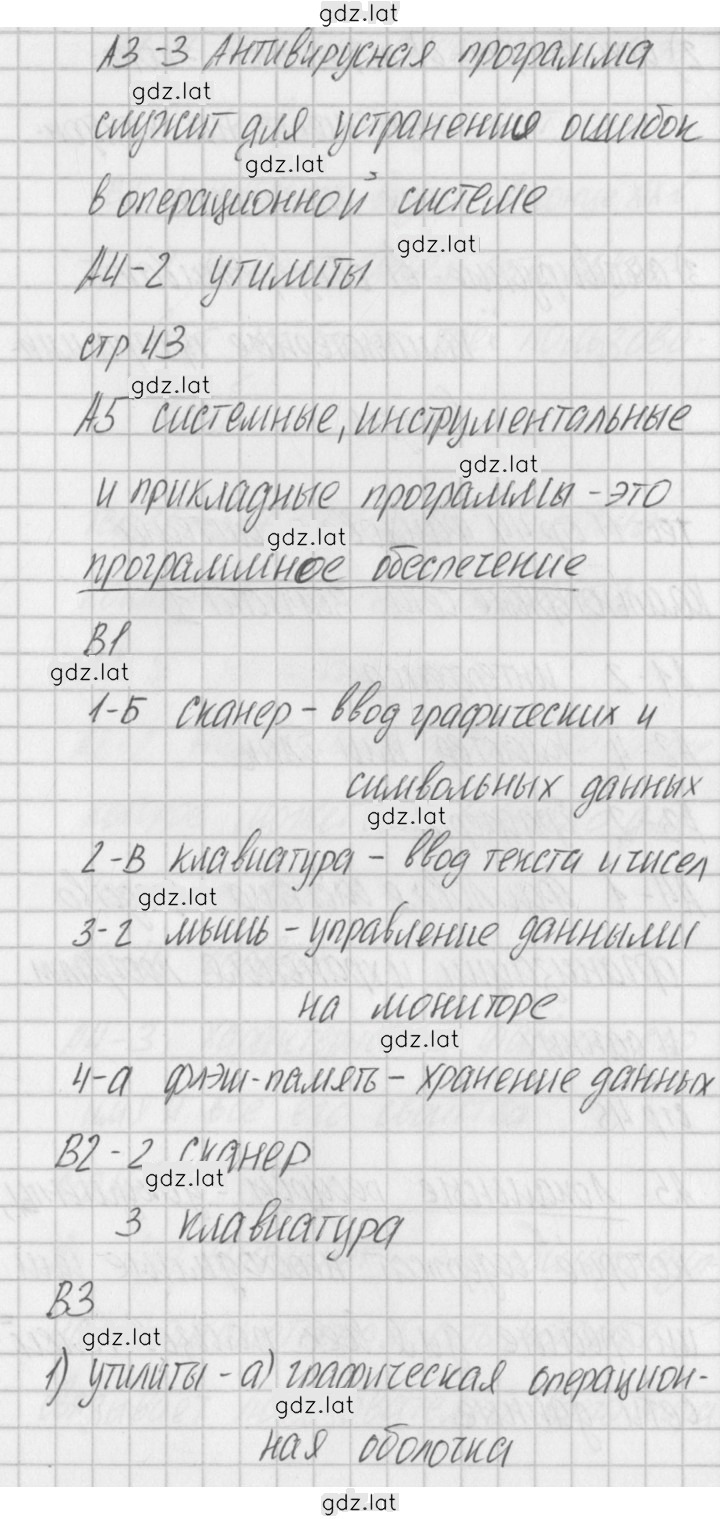 gdz.lat
А3-3 Антивирусная программа
gdz.lat
служит для устранения ошибок
gdz.lat
в операционной системе
gdz.lat
А4-2 утилиты
стр 43
gdz.lat
А5 системные, инструментальные
gdz.lat
и прикладные программы - это
gdz.lat
программное обеспечение
В1
gdz.lat
1-Б сканер - ввод графических и
символьных данных
gdz.lat
2-В клавиатура - ввод текста и чисел
gdz.lat
3-г мышь - управление данными
на мониторе
gdz.lat
4-а флэш-память - хранение данных
В2-2 сканер
gdz.lat
3 клавиатура
В3
gdz.lat
1) утилиты - а) графическая операцион-
gdz.lat
ная оболочка
gdz.lat